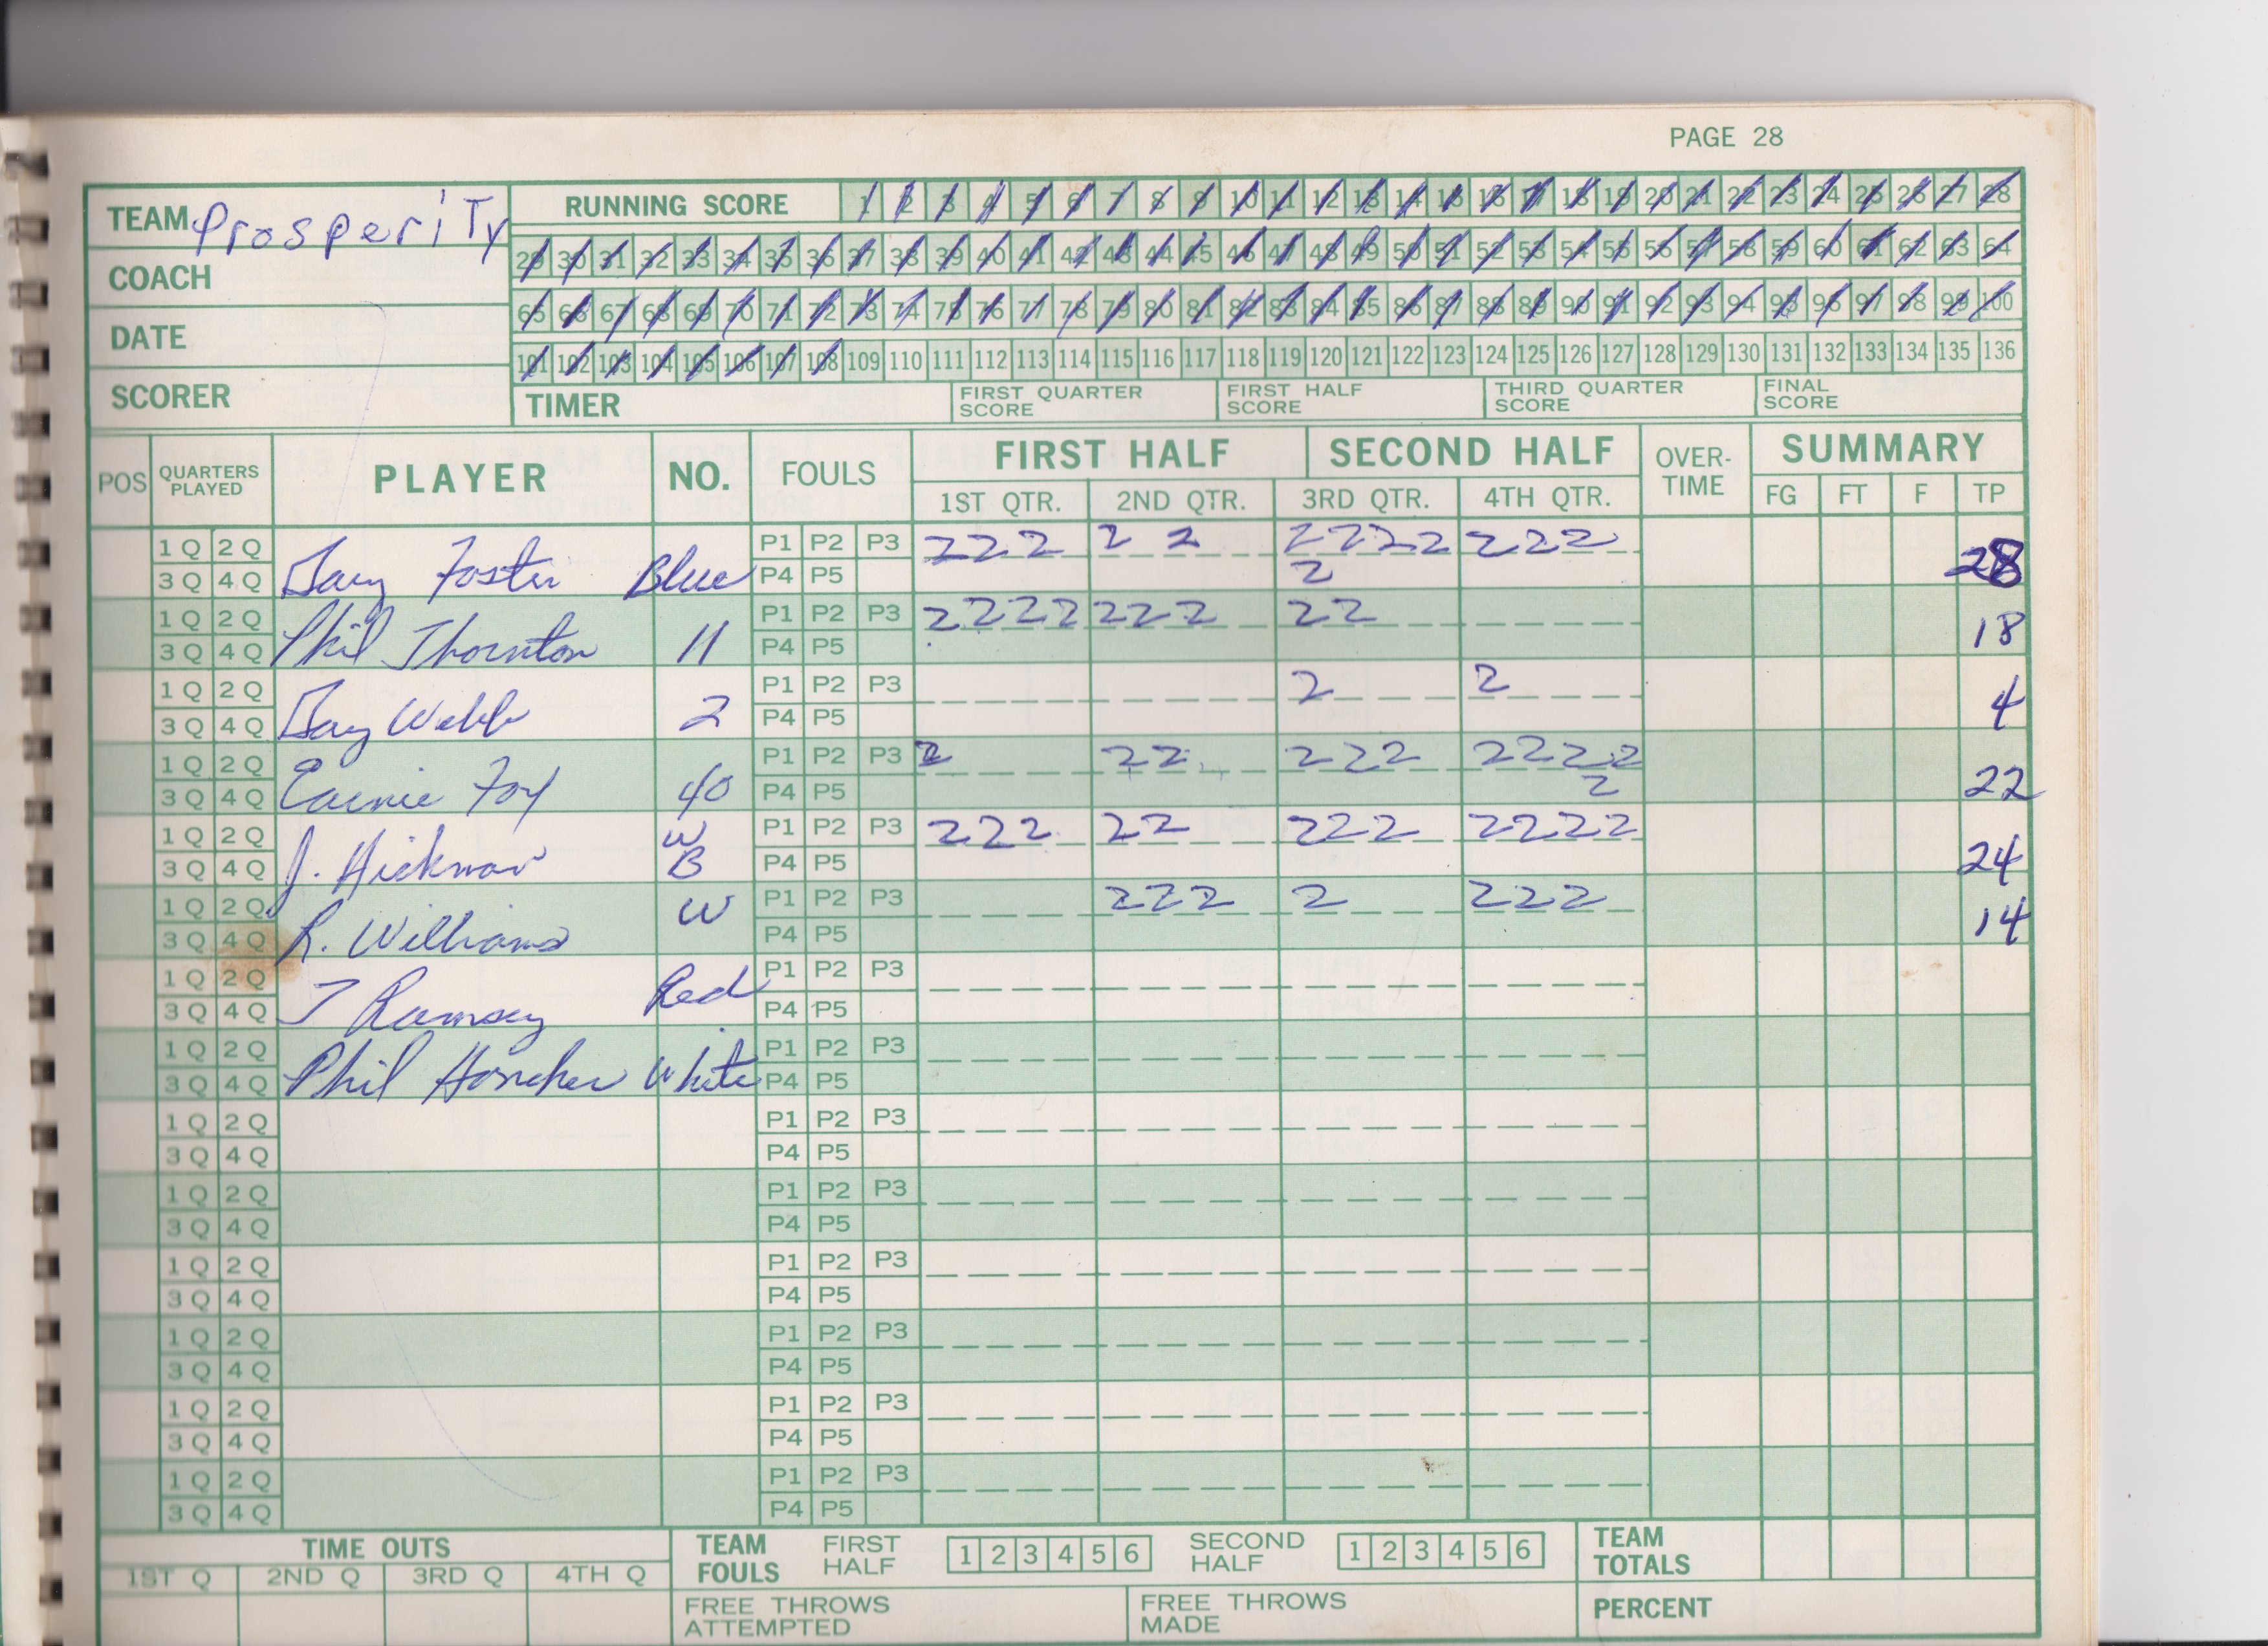 PAGE 28
TEAM Prosperity
RUNNING SCORE 1 2 3 4 5 6 7 8 9 10 11 12 13 14 15 16 17 18 19 20 21 22 23 24 25 26 27 28
29 30 31 32 33 34 35 36 37 38 39 40 41 42 43 44 45 46 47 48 49 50 51 52 53 54 55 56 57 58 59 60 61 62 63 64
COACH
65 66 67 68 69 70 71 72 73 74 75 76 77 78 79 80 81 82 83 84 85 86 87 88 89 90 91 92 93 94 95 96 97 98 99 100
DATE
101 102 103 104 105 106 107 108 109 110 111 112 113 114 115 116 117 118 119 120 121 122 123 124 125 126 127 128 129 130 131 132 133 134 135 136
SCORER
TIMER FIRST QUARTER SCORE FIRST HALF SCORE THIRD QUARTER SCORE FINAL SCORE
POS QUARTERS PLAYED PLAYER NO. FOULS FIRST HALF SECOND HALF OVER-TIME SUMMARY
1ST QTR. 2ND QTR. 3RD QTR. 4TH QTR. FG FT F TP
1 Q 2 Q P1 P2 P3 2 2 2 2 2 2 2 2 2 2 2 2
3 Q 4 Q Gary Foster Blue P4 P5 2 28
1 Q 2 Q P1 P2 P3 2 2 2 2 2 2 2 2 2
3 Q 4 Q Phil Thornton 11 P4 P5 18
1 Q 2 Q P1 P2 P3 2 2
3 Q 4 Q Gary Webb 2 P4 P5 4
1 Q 2 Q P1 P2 P3 2 2 2 2 2 2 2 2 2 2
3 Q 4 Q Earnie Foy 40 P4 P5 2 22
1 Q 2 Q W P1 P2 P3 2 2 2 2 2 2 2 2 2 2 2 2
3 Q 4 Q J. Hickman B P4 P5 24
1 Q 2 Q W P1 P2 P3 2 2 2 2 2 2 2
3 Q 4 Q R. Williams P4 P5 14
1 Q 2 Q Red P1 P2 P3
3 Q 4 Q T Ramsey P4 P5
1 Q 2 Q P1 P2 P3
3 Q 4 Q Phil White P4 P5
1 Q 2 Q P1 P2 P3
3 Q 4 Q P4 P5
1 Q 2 Q P1 P2 P3
3 Q 4 Q P4 P5
1 Q 2 Q P1 P2 P3
3 Q 4 Q P4 P5
1 Q 2 Q P1 P2 P3
3 Q 4 Q P4 P5
1 Q 2 Q P1 P2 P3
3 Q 4 Q P4 P5
1 Q 2 Q P1 P2 P3
3 Q 4 Q P4 P5
TIME OUTS TEAM FOULS FIRST HALF 1 2 3 4 5 6 SECOND HALF 1 2 3 4 5 6 TEAM TOTALS
1ST Q 2ND Q 3RD Q 4TH Q
FREE THROWS ATTEMPTED FREE THROWS MADE PERCENT